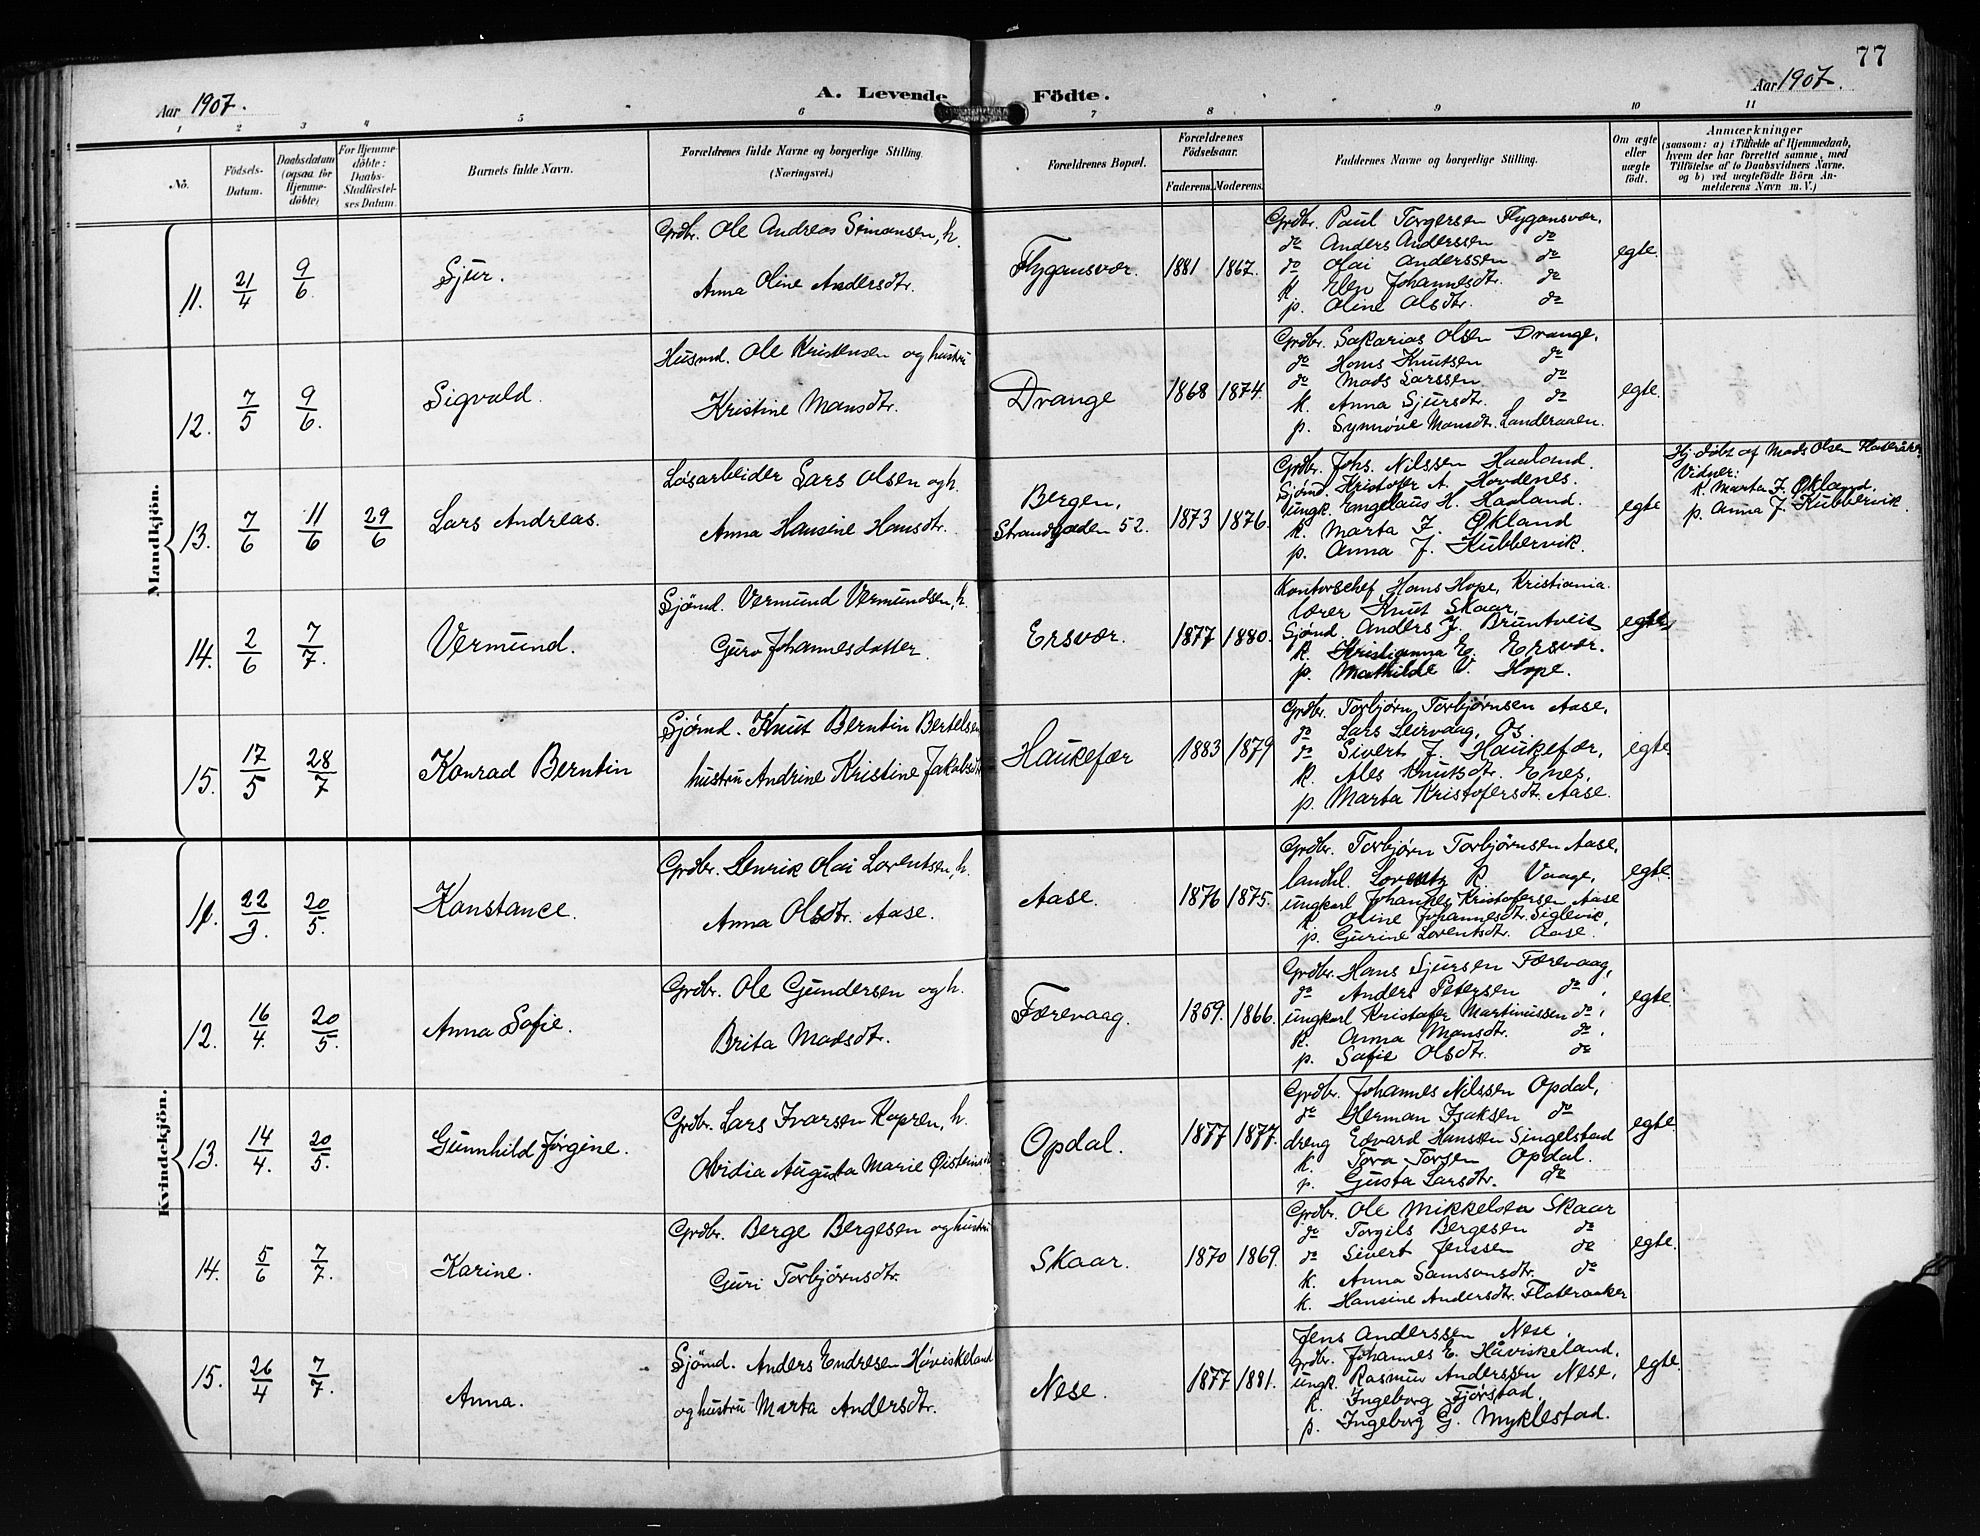 77
Aar 1907.
A. Levende Födte.
Aar 1907.
1 2 3 4 5 6 7 8 9 10 11
Nô.
Födsels-Datum.
Daabsdatum (ogsaa for Hjemme-döbte)
For Hjemme-döbte: Daabs-Stadfæstel-ses Datum.
Barnets fulde Navn.
Forældrenes fulde Navne og borgerlige Stilling.
(Næringsvei.)
Forældrenes Bopæl.
Forældrenes Födselsaar.
Faderens. Moderens.
Faddernes Navne og borgerlige Stilling.
Om ægte eller uægte födt.
Anmærkninger
(saasom: a) i Tilfælde af Hjemmedaab, hvem der har forrettet samme, med Tilföielse af to Daabsvidners Navne, og b) ved uægtefödte Börn An-melderens Navn m. V.)
Mandkjön.
11. 21/4 9/6 Sjur.
Grdbr. Ole Andreas Simonsen, h.
Anna Oline Andersdtr.
Flygansvær. 1881 1867.
Grdbr. Paul Torgersen Flygansvær,
do Anders Anderssen do
do Olai Anderssen do
k. Elen Johannesdtr. do
p. Oline Olsdtr. do
egte.
12. 7/5 9/6. Sigvald.
Husmd. Ole Kristensen og hustru
Kristine Mansdtr.
Drange 1868 1874.
Grdbr. Sakarias Olsen Drange,
do Hans Knutsen do
do Mads Larssen do
k. Anna Sjursdtr. do
p. Synnöve Mansdtr. Landeraaen.
egte.
13. 7/6 11/6 29/6 Lars Andreas.
Løsarbeider Lars Olsen og h.
Anna Hansine Hansdtr.
Bergen,
Strandgaden 52. 1873 1876.
Grdbr. Johs. Nilssen Haaland.
Sjömd. Kristofer A. Hovdenes.
Ungk. Engelaus H. Haaland.
k. Marta J. Økland
p. Anna J. Kubbervik.
egte
Hj. döbt af Mads Olsen Flateråker
Vidner:
k. Marta J. Økland.
p. Anna J. Kubbervik.
14. 2/6 7/7. Vermund.
Sjömd. Vermund Vermundsen, h.
Guro Johannesdatter.
Ersvær. 1877 1880.
Kontorschef Hans Hope, Kristiania.
lærer Knut Skaar,
Sjömd. Anders J. Bruntveit
k. Kristianna E. Ersvær.
p. Mathilde V. Hope.
egte
15. 17/5 28/7 Konrad Berntin
Sjömd. Knut Berntin Bertelsen
hustru Andrine Kristine Jakobsdtr
Haukefær 1883 1879
Grdbr. Torbjörn Torbjörnsen Aase,
do Lars Leirvaag, Os.
do Sivert J. Haukefær,
k. Ales Knutsdtr. Enes,
p. Marta Kristofersdtr. Aase.
egte.
Kvindekjön.
11. 22/3. 20/5. Konstance.
Grdbr. Henrik Olai Lorentsen, h.
Anna Olsdtr. Aase.
Aase. 1876 1875.
Grdbr. Torbjörn Torbjörnsen Aase,
landhl. Lorentz R Vaage,
ungkarl Johannes Kristofersen Aase
k. Oline Johannesdtr. Siglevik,
p. Gurine Lorentsdtr. Aase.
egte.
12. 16/4. 20/5. Anna Sofie.
Grdbr. Ole Gundersen og h.
Brita Madsdtr.
Færevaag. 1859. 1866.
Grdbr. Hans Sjursen Færevaag,
do Anders Petersen do,
ungkarl Kristofer Martinussen do,
k. Anna Mansdtr. do,
p. Sofie Olsdtr. do
egte.
13. 14/4. 20/5. Gunnhild Jörgine.
Grdbr. Lars Ivarsen Kopren, h.
Ovidia Augusta Marie
Opdal. 1877 1877.
Grdbr. Johannes Nilssen Opdal,
do Herman Isaksen do
dreng Edvard Hanssen Singelstad
k. Tora Torsen Opdal.
p. Gusta Larsdtr. do
egte.
14. 5/6 7/7. Karine.
Grdbr. Berge Bergesen og hustru
Guri Torbjörnsdtr.
Skaar. 1870 1869.
Grdbr. Ole Mikkelsen Skaar
do Torgils Bergesen do
do Sivert Jenssen do
k. Anna Samsonsdtr. do
k. Hansine Andersdtr. Flateraaker
egte.
15. 26/4 7/7. Anna.
Sjömd. Anders Endresen Håviskeland
og hustru Marta Andersdtr.
Nese. 1877 1881.
Jens Anderssen Nese,
grdbr. Johannes E. Håviskeland,
ungk. Rasmus Anderssen Nese,
k. Ingeborg Fjörstad,
p. Ingeborg G. Myklestad.
egte.